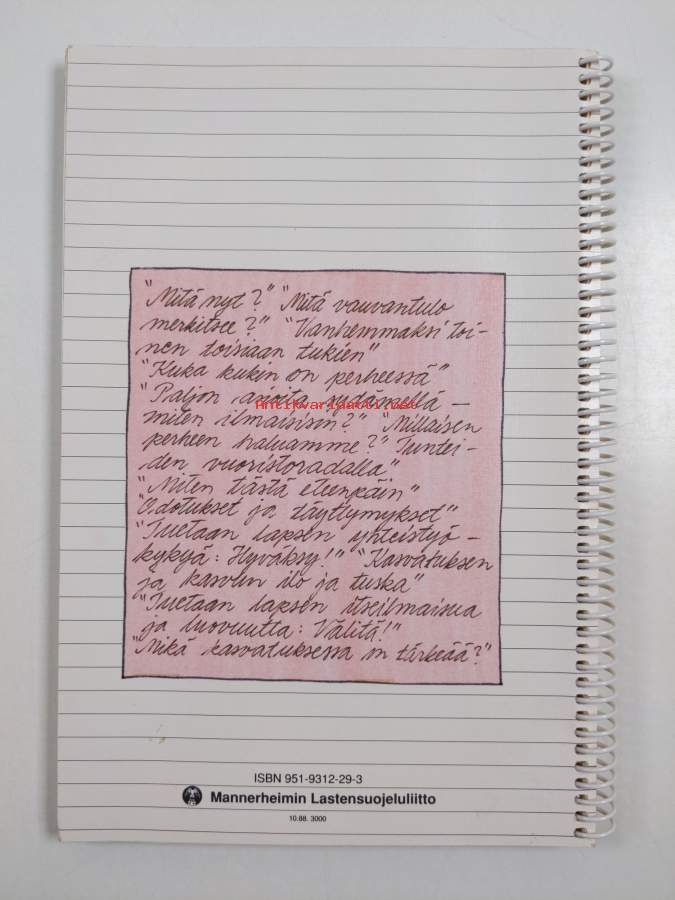 "Mitä nyt?" "Mitä vauvantulo
merkitsee?" "Vanhemmaksi toi-
nen toisiaan tukien"
"Kuka kukin on perheessä"
"Paljon asioita sydämellä –
Antikvariaatti.net
miten ilmaisisin?" "Millaisen
perheen haluamme?" Tuntei-
den vuoristoradalla"
"Miten tästä eteenpäin"
"Odotukset ja täyttymykset"
"Tuetaan lapsen yhteistyö-
kykyä: Hyväksy!" "Kasvatuksen
ja kasvun ilo ja tuska"
"Tuetaan lapsen itseilmaisua
ja luovuutta: Välitä!"
"Mikä kasvatuksessa on tärkeää?"
ISBN 951-9312-29-3
Mannerheimin Lastensuojeluliitto
10.88. 3000